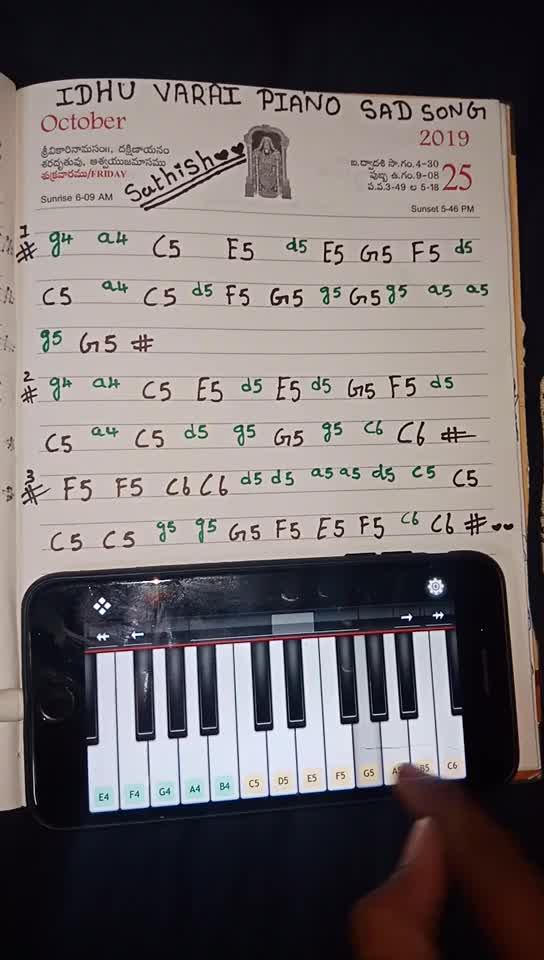 IDHU VARAI PIANO SAD SONG
October
2019
శ్రీవికారినామసం॥, దక్షిణాయనం
శరదృతువు, ఆశ్వయుజమాసము
శుక్రవారము/FRIDAY
Sunrise 6-09 AM
Sathish
ఐ.ద్వాదశి సా.గం.4-30
పుబ్బ ఉ.గం.9-08
ప.వ.3-49 ల 5-18
25
Sunset 5-46 PM
1
# g4 a4 C5 E5 d5 E5 G5 F5 d5
C5 a4 C5 d5 F5 G5 g5 G5 g5 a5 a5
g5 G5 #
2
# g4 a4 C5 E5 d5 E5 d5 G5 F5 d5
C5 a4 C5 d5 g5 G5 g5 c6 C6 #
3
# F5 F5 C6 C6 d5 d5 a5 a5 d5 c5 C5
C5 C5 g5 g5 G5 F5 E5 F5 c6 C6 #
E4 F4 G4 A4 B4 C5 D5 E5 F5 G5 B5 C6